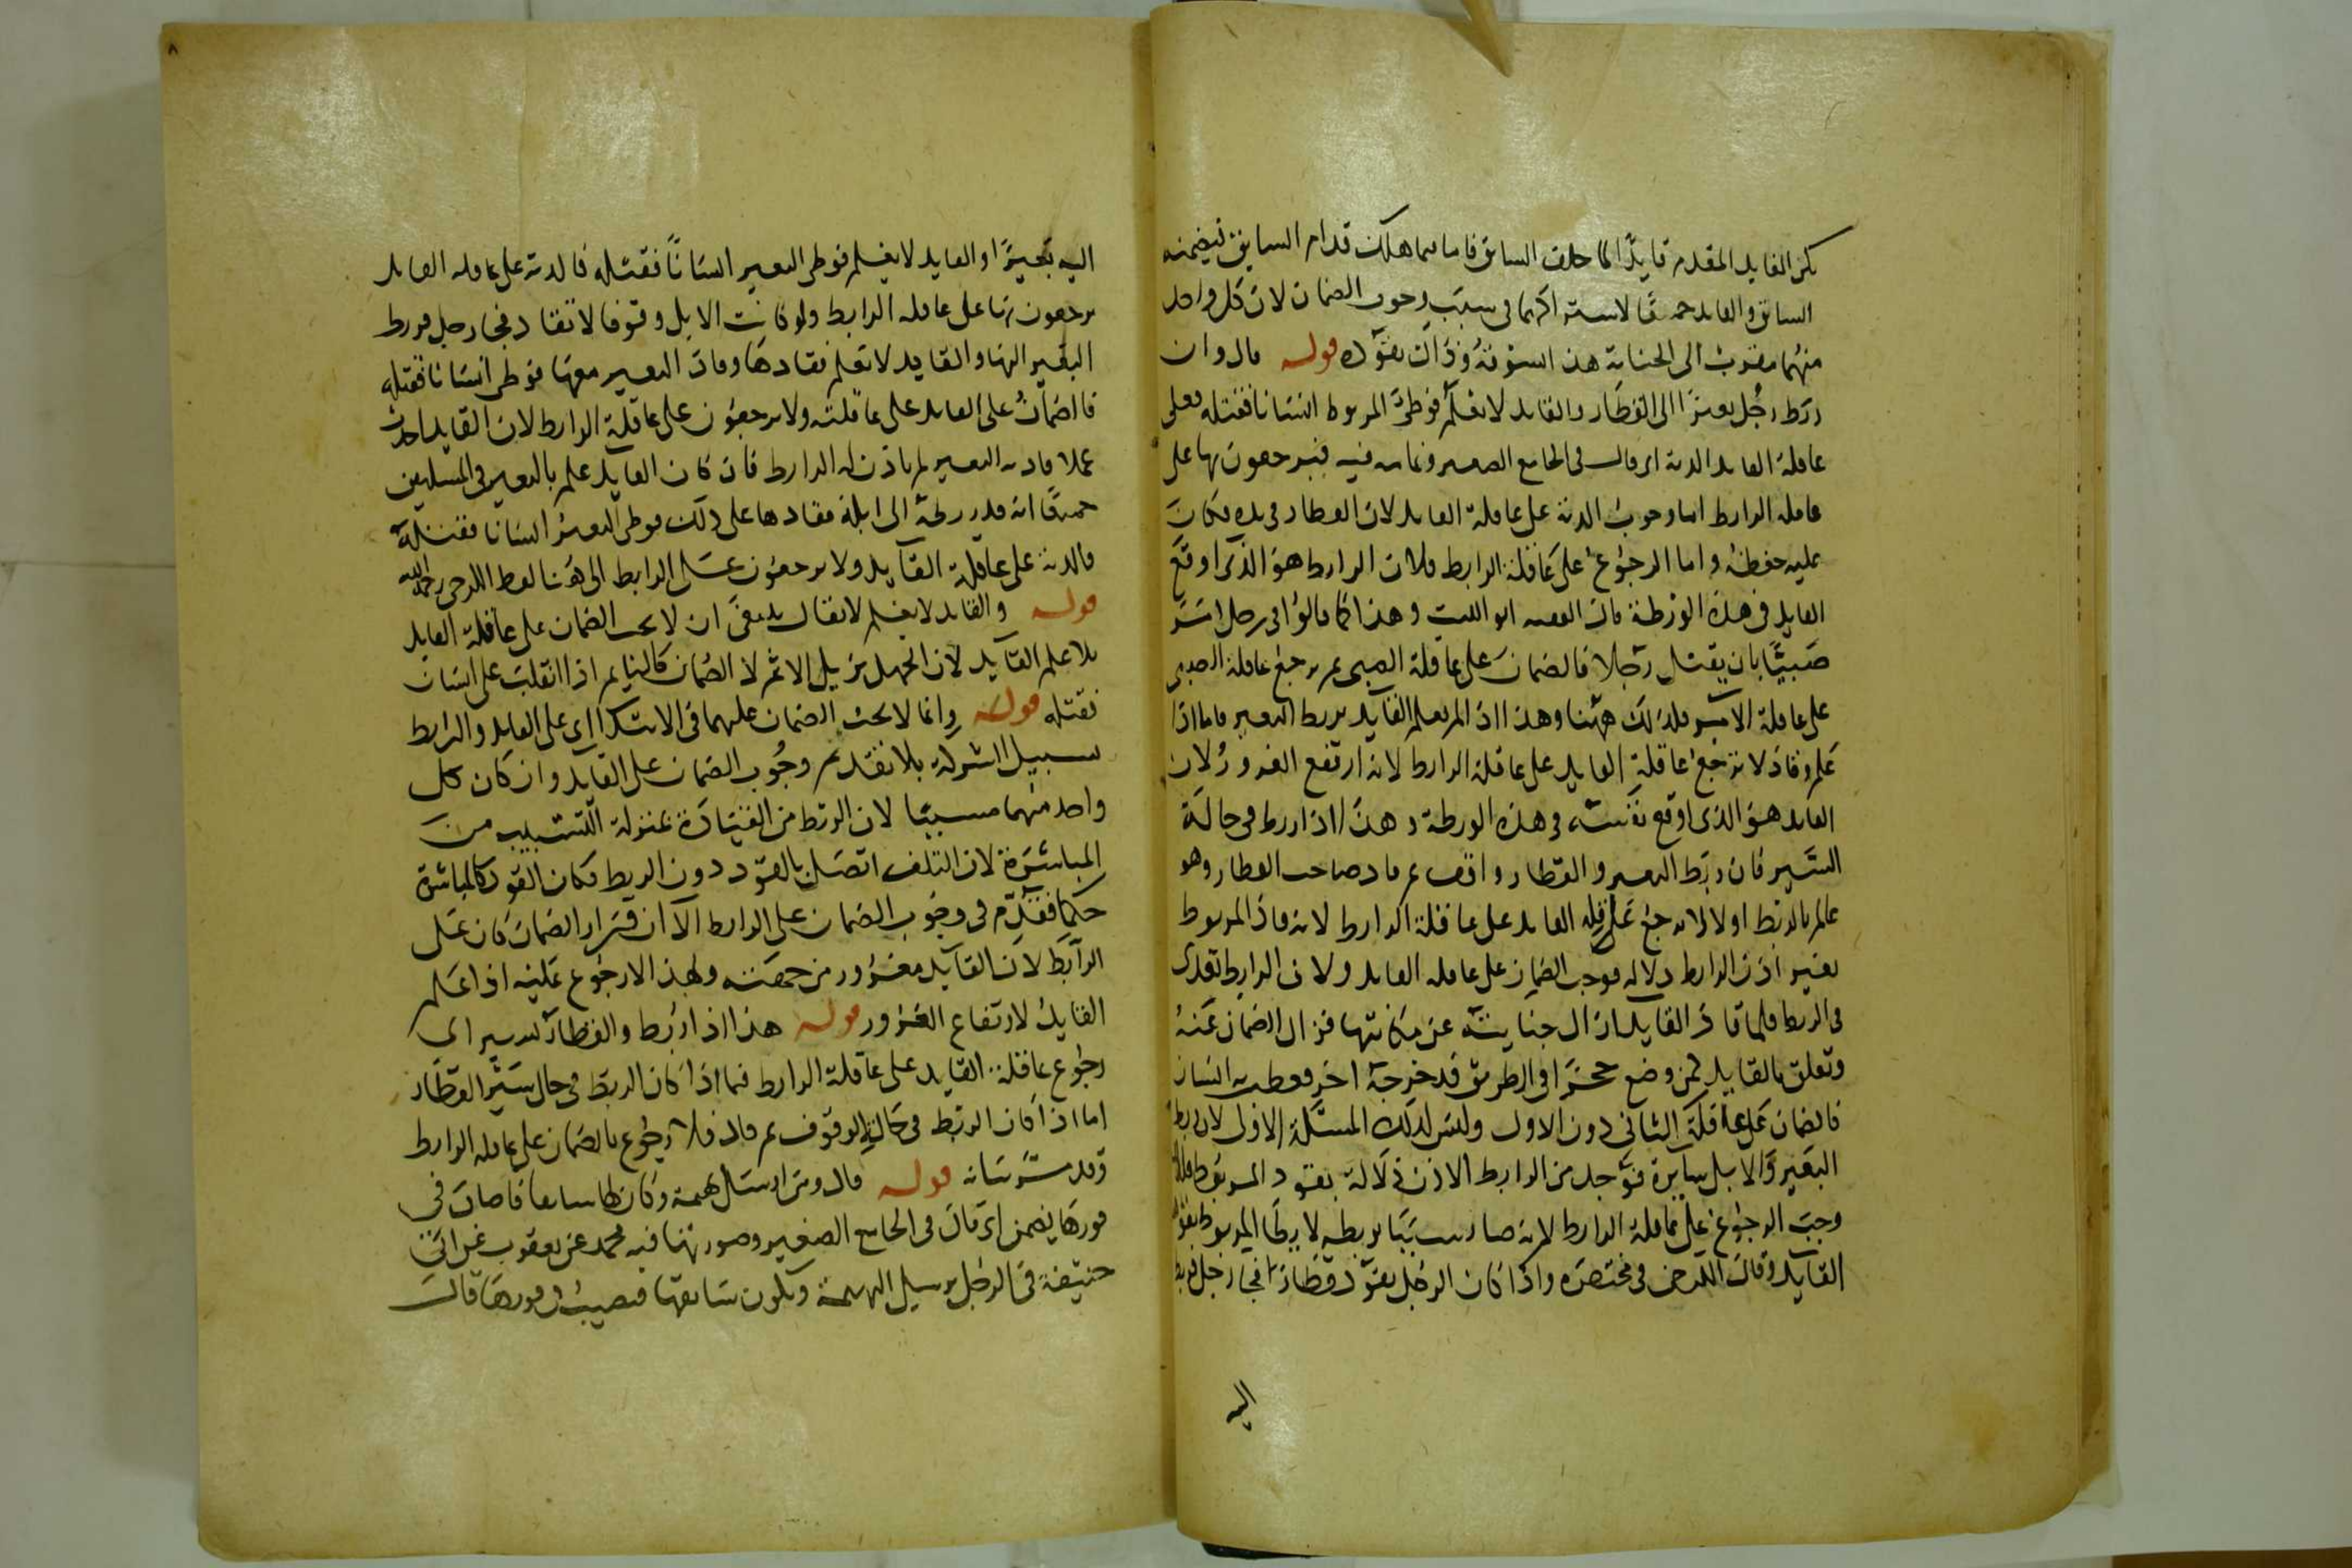 لكن القايد المقدم قايدا لما خلف السايق فاما ما هلك قدام السايق فيضمنه
السايق والقايد جميعا لاستوائهما فى سبب وجوب الضمان لان كل واحد
منهما مقرب الى الجناية هذا بسوقه وذاك بقوده قوله قال وان
ربط رجل بعيرا الى القطار والقايد لا يعلم فوطئ المربوط انسانا فقتله فعلى
عاقلة القايد الدية اى قال فى الجامع الصغير وتمامه فيه فيرجعون بها على
عاقلة الرابط اما وجوب الدية على عاقلة القايد لان القطار فى يده فكان
عليه حفظه واما الرجوع على عاقلة الرابط فلان الرابط هو الذى اوقع
القايد فى هذه الورطة قال الفقيه ابو الليث وهذا كما قالوا فى رجل امر
صبيا بان يقتل رجلا فالضمان على عاقلة الصبى ثم يرجع عاقلة الصبى
على عاقلة الآمر فكذلك ههنا وهذا اذا لم يعلم القايد بربط البعير فاما اذا
علم وقاد لا ترجع عاقلة القايد على عاقلة الرابط لانه ارتفع الغرور لان
القايد هو الذى اوقع نفسه فى هذه الورطة وهذا اذا ربط فى حالة
السير فان ربط البعير والقطار واقف ثم قاد صاحب القطار وهو
عالم بالربط اولا لا يرجع عاقلة القايد على عاقلة الرابط لانه قاد المربوط
بغير اذن الرابط دلالة فوجب الضمان على عاقلة القايد ولان الرابط تعدى
فى الربط فلما قاد القايد ازال جنايته عن مكانتها فزال الضمان عنه
وتعلق بالقايد كمن وضع حجرا فى الطريق فدحرجه اخر فعطب به انسان
فالضمان على عاقلة الثانى دون الاول وليس كذلك المسئلة الاولى لان ربط
البعير والابل سايرة فوجد من الرابط الاذن دلالة بقود المربوط فلذا
وجب الرجوع على عاقلة الرابط لانه صار سببا بربطه لا يطأ المربوط بقود
القايد وقال الكرخى فى مختصره واذا كان الرجل يقود قطارا فجا رجل فربط
اليه
اليه بعيرا والقايد لا يعلم فوطى البعير انسانا فقتله فالدية على عاقلة القايد
يرجعون بها على عاقلة الرابط ولو كانت الابل وقوفا لا تقاد فجا رجل فربط
البعير اليها والقايد لا يعلم فقادها وقاد البعير معها فوطى انسانا فقتله
فالضمان على القايد على عاقلته ولا يرجعون على عاقلة الرابط لان القايد احدث
عملا قاد به البعير لم ياذن له الرابط فان كان القايد علم بالبعير فى المسلتين
جميعا انه قد ربطه الى ابله فقادها على ذلك فوطى البعير انسانا فقتله
فالدية على عاقلة القايد ولا يرجعون على الرابط الى هنا لفظ الكرخى رحمه الله
قوله والقايد لا يعلم لا يقال ينبغى ان لا يجب الضمان على عاقلة القايد
بلا علم القايد لان الجهل يزيل الاثم لا الضمان كالنايم اذا انقلب على انسان
فقتله قوله وانما لا يجب الضمان عليهما فى الابتدا اى على القايد والرابط
سبيل الشركة بلا تقديم وجوب الضمان على القايد وان كان كل
واحد منهما مسببا لان الربط من القيادة بمنزلة التسبيب من
المباشرة لان التلف اتصل بالقود دون الربط فكان القود كالمباشرة
حكما فقدم فى وجوب الضمان على الرابط الا ان قرار الضمان كان على
الرابط لان القايد مغرور من جهته ولهذا لا رجوع عليه اذا علم
القايد لارتفاع الغرور قوله هذا اذا ربط والقطار يسير اى
رجوع عاقلة القايد على عاقلة الرابط فيما اذا كان الربط فى حال سير القطار
اما اذا كان الربط فى حالة الوقوف ثم قاد فلا رجوع بالضمان على عاقلة الرابط
وقد مر بيانه قوله قال ومن ارسل بهيمة وكان لها سايقا فاصاب فى
فورها يضمن اى قال فى الجامع الصغير وصورتها فيه محمد عن يعقوب عن ابى
حنيفة فى الرجل يرسل البهيمة ويكون سايقها فتصيب فى فورها قال